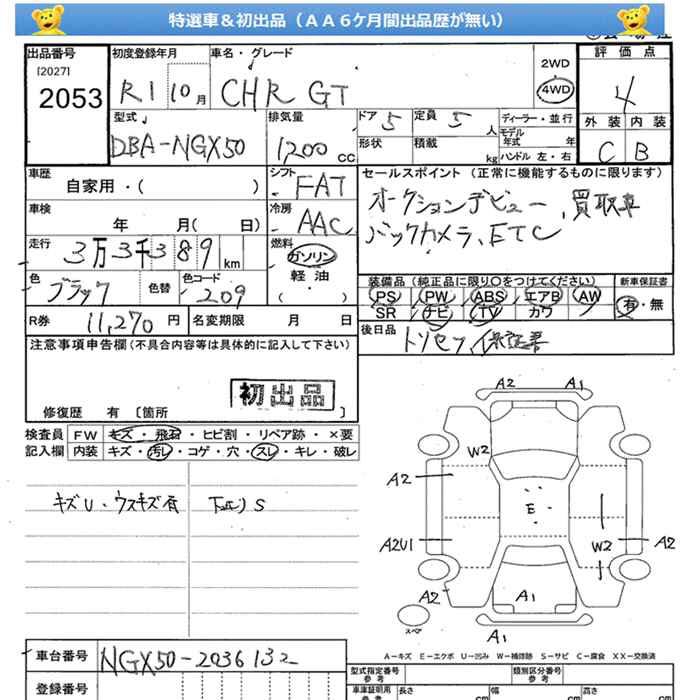 特選車＆初出品（ＡＡ６ケ月間出品歴が無い）
出品番号 初度登録年月 車名・グレード 評価点
[2027]
2053 R1 10月 CHR GT 2WD 4WD 4
型式 排気量 ドア 5 定員 5人 ディーラー・並行 外装 内装
DBA-NGX50 1200cc 形状 積載 kg モデル年式 年 ハンドル 左・右 C B
車歴 シフト セールスポイント（正常に機能するものに限ります）
自家用・( ) FAT オークションデビュー、買取車
車検 冷房 バックカメラ、ETC
年 月( 日) AAC
走行 燃料
3万3千389km ガソリン
色 色替 色コード 軽油 装備品（純正品に限り〇をつけてください） 新車保証書
ブラック 209 ( ) PS PW ABS エアB AW 有・無
SR ナビ TV カワ
R券 11,270円 名変期限 月 日 後日品
トリセツ、保証書
注意事項申告欄（不具合内容等は具体的に記入して下さい）
初出品
修復歴 有 〔箇所 〕
検査員 FW キズ・飛石・ヒビ割・リペア跡・×要
記入欄 内装 キズ・汚レ・コゲ・穴・スレ・キレ・破レ
キズU・ウスキズ有 下廻りS
A2 A1
W2
A2
E
A2U1 W2 A2
A2 A1 A2
スペア
A1
A－キズ E－エクボ U－凹み W－補修跡 S－サビ C－腐食 XX－交換済
車台番号 NGX50-2036132
登録番号
型式指定番号 参考 類別区分番号 参考
車庫証明用 参考 長さ cm 幅 cm 高さ cm